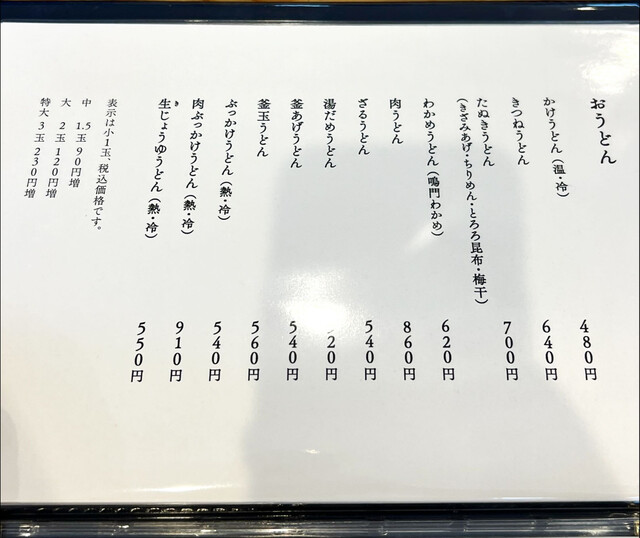 おうどん
かけうどん（温・冷） 480円
きつねうどん 640円
たぬきうどん 700円
（きざみあげ・ちりめん・とろろ昆布・梅干）
わかめうどん（鳴門わかめ） 620円
肉うどん 860円
ざるうどん 540円
湯だめうどん
釜あげうどん 540円
釜玉うどん 560円
ぶっかけうどん（熱・冷） 540円
肉ぶっかけうどん（熱・冷） 910円
生じょうゆうどん（熱・冷） 550円
表示は小1玉、税込価格です。
中 1.5玉 90円増
大 2玉 120円増
特大 3玉 230円増